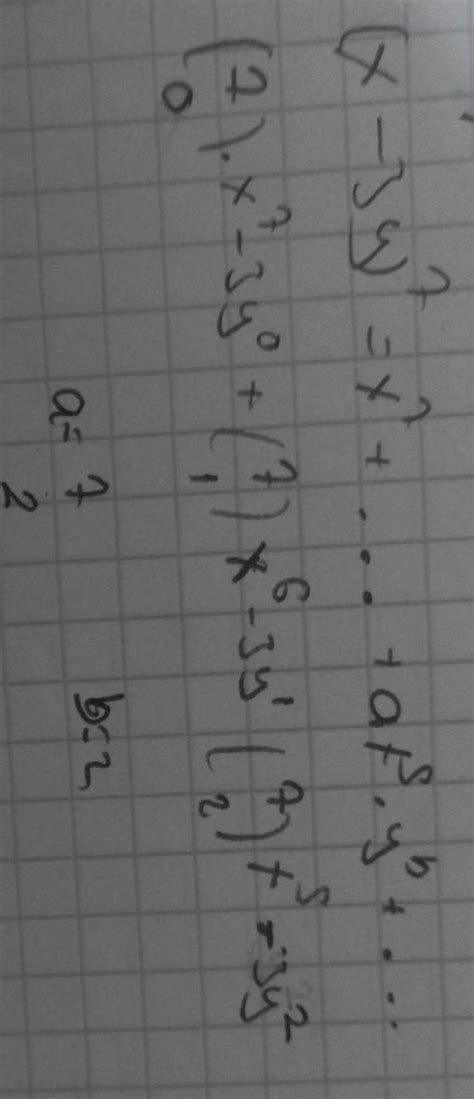 (x - 3y)⁷ = x⁷ + ... + ax⁵ . y^b + ...
(7 0) . x⁷ - 3y⁰ + (7 1) x⁶ - 3y¹ (7 2) x⁵ - 3y²
a = 7 b = 2
2